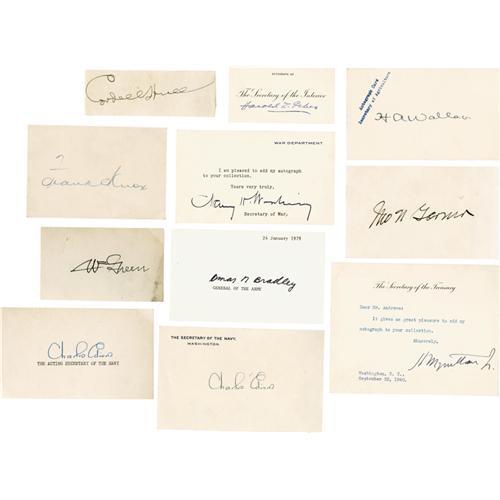 Cordell Hull
AUTOGRAPH OF
The Secretary of the Interior
Harold L. Ickes
Autograph Card
Secretary of Agriculture
H A Wallace
Frank Knox
WAR DEPARTMENT
I am pleased to add my autograph
to your collection.
Yours very truly,
Secretary of War.
Jno N Garner
Wm Green
24 January 1979
Omar N Bradley
GENERAL OF THE ARMY
The Secretary of the Treasury
Dear Mr. Andrews:
It gives me great pleasure to add my
autograph to your collection.
Sincerely,
H Morgenthau Jr.
Washington, D. C.,
September 22, 1940.
Charles Edison
THE ACTING SECRETARY OF THE NAVY
THE SECRETARY OF THE NAVY.
WASHINGTON.
Charles Edison